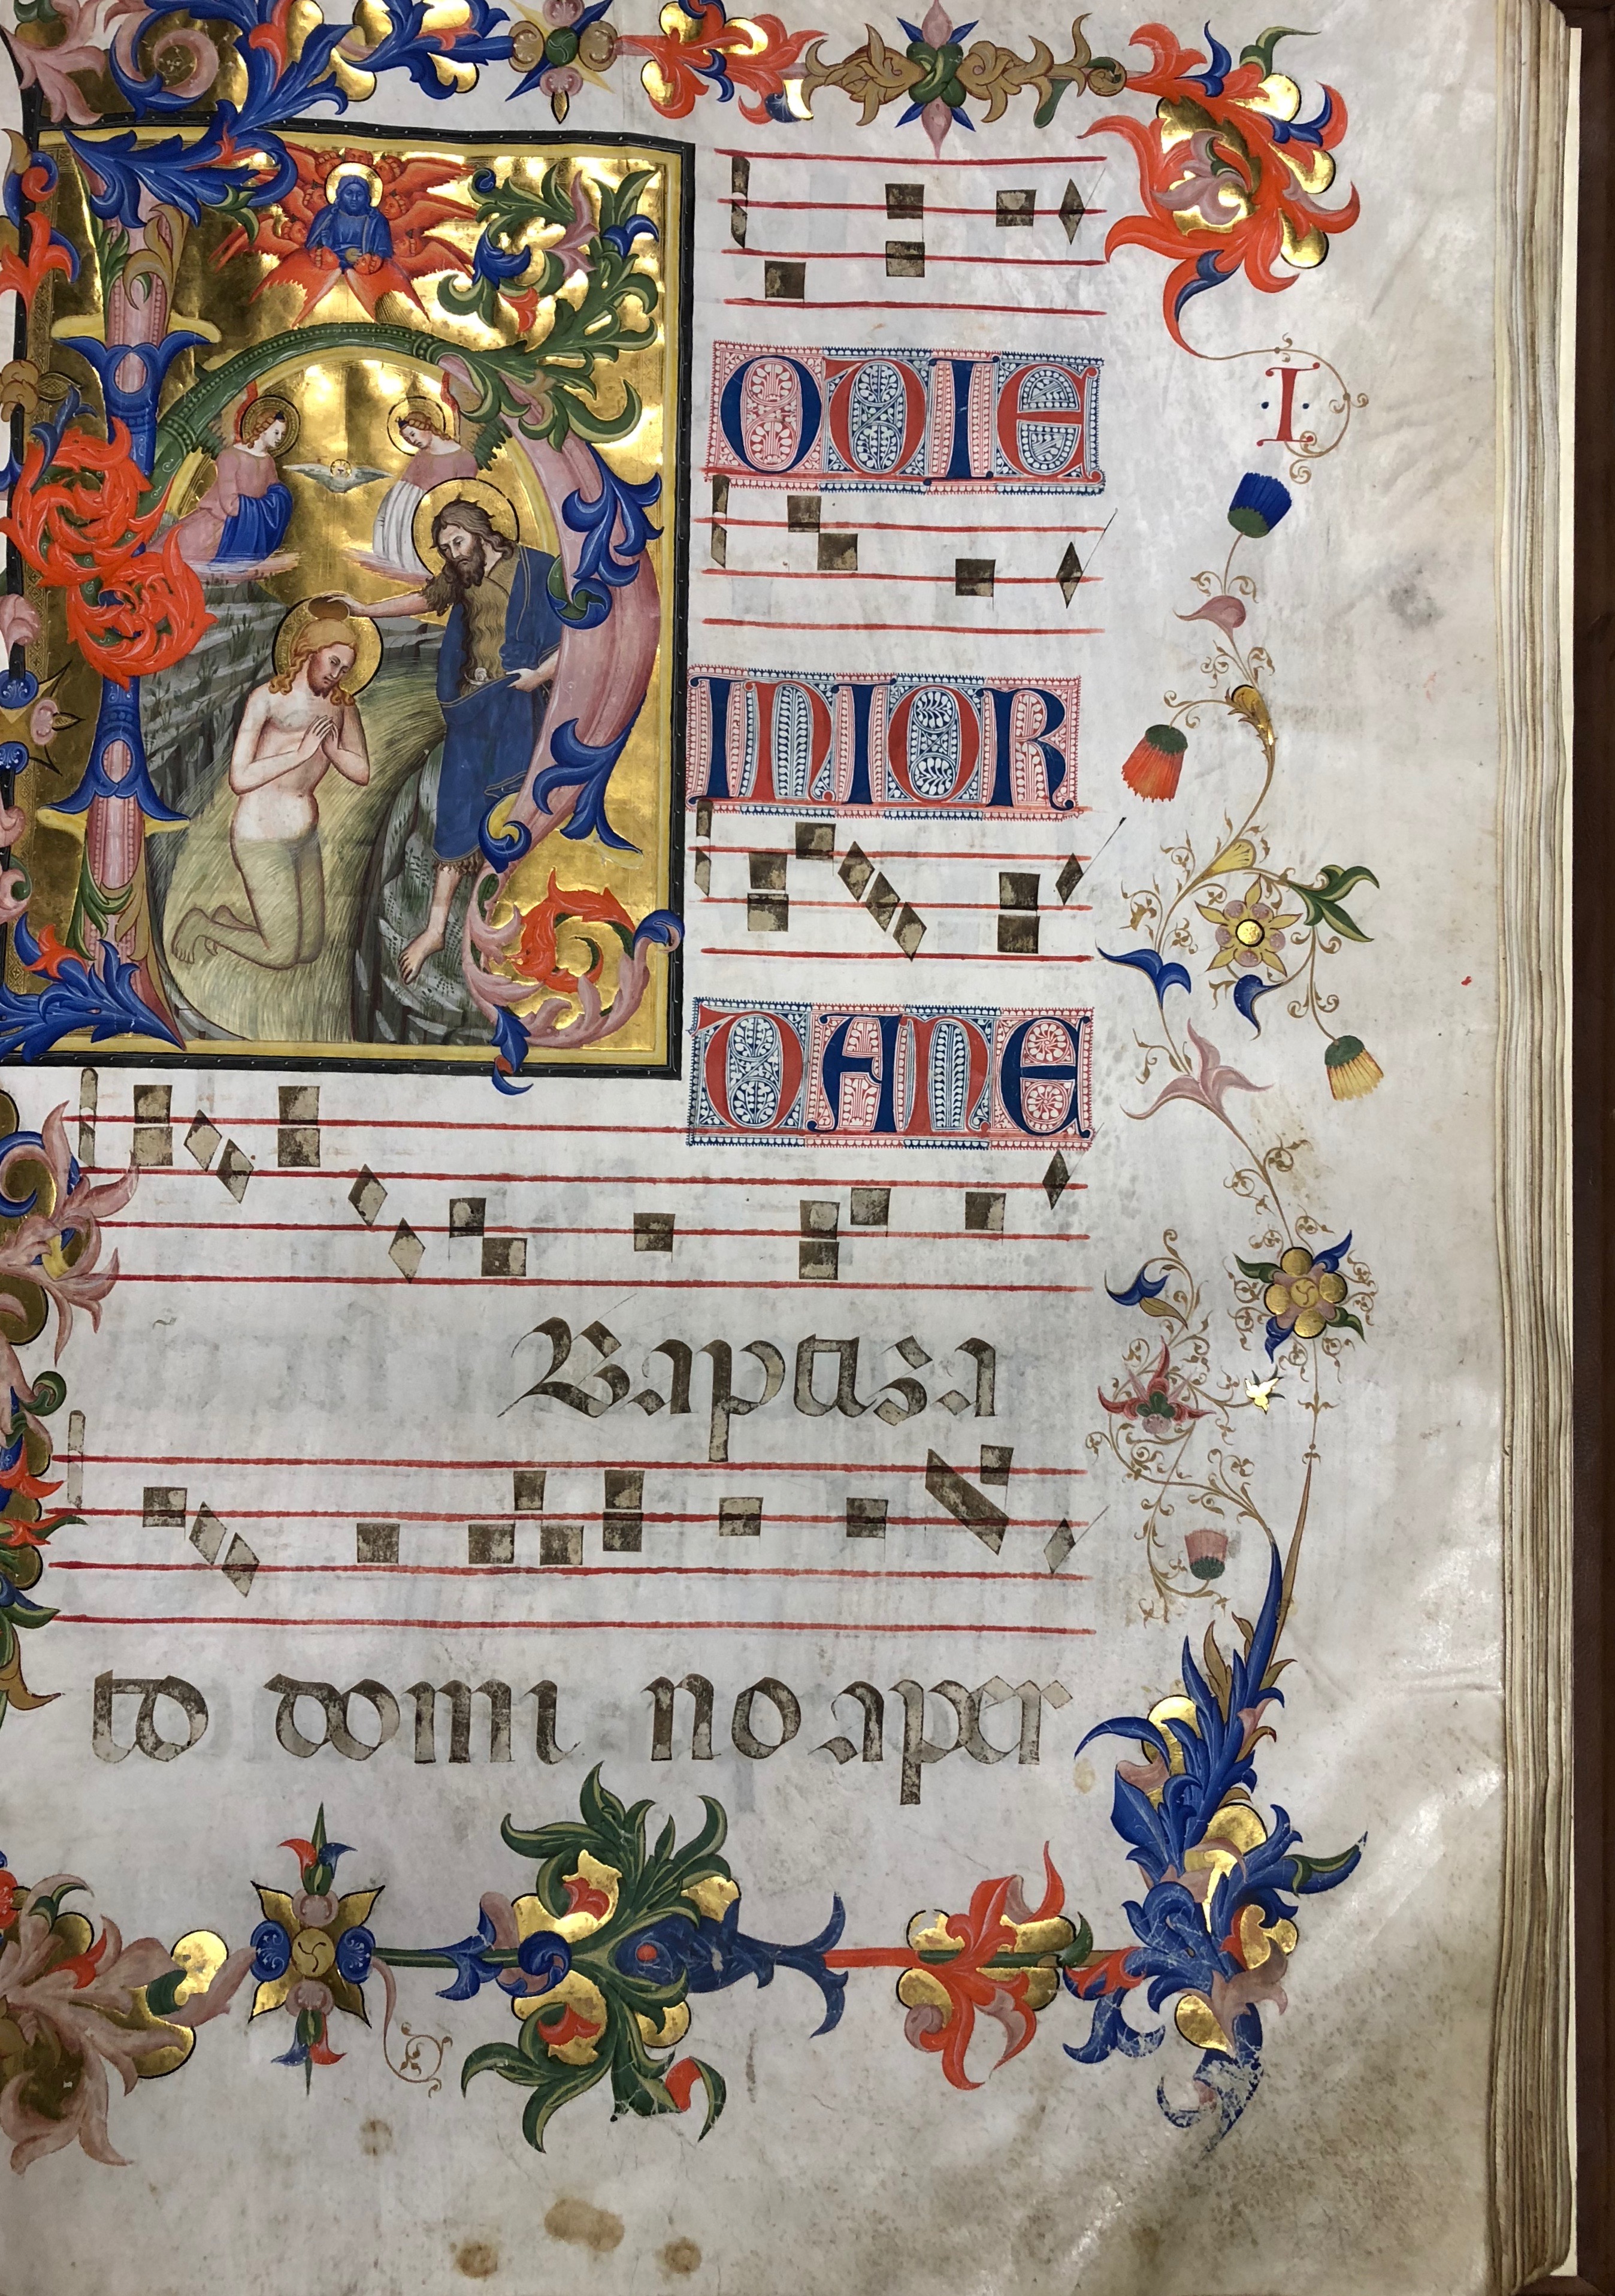 HODIE
·I·
IN IOR
DANE
Baptiza
to domi no aper